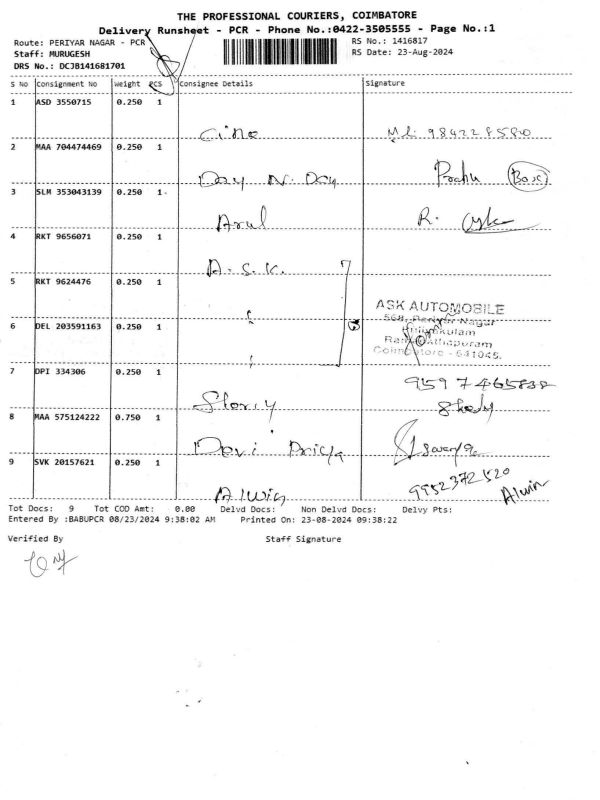 THE PROFESSIONAL COURIERS, COIMBATORE
Delivery Runsheet - PCR - Phone No.:0422-3505555 - Page No.:1
Route: PERIYAR NAGAR - PCR RS No.: 1416817
Staff: MURUGESH RS Date: 23-Aug-2024
DRS No.: DCJB141681701
S No Consignment No Weight PCS Consignee Details Signature
1 ASD 3550715 0.250 1
Cino
2 MAA 704474469 0.250 1
Day N. Day Prabu
3 SLM 353043139 0.250 1
Arul R.
4 RKT 9656071 0.250 1
A.S.K.
5 RKT 9624476 0.250 1
ASK AUTOMOBILE
6 DEL 203591163 0.250 1
Coimbatore - 641045.
7 DPI 334306 0.250 1
8 MAA 575124222 0.750 1
Devi Priya
9 SVK 20157621 0.250 1
9952372520
Alwin Alwin
Tot Docs: 9 Tot COD Amt: 0.00 Delvd Docs: Non Delvd Docs: Delvy Pts:
Entered By :BABUPCR 08/23/2024 9:38:02 AM Printed On: 23-08-2024 09:38:22
Verified By Staff Signature